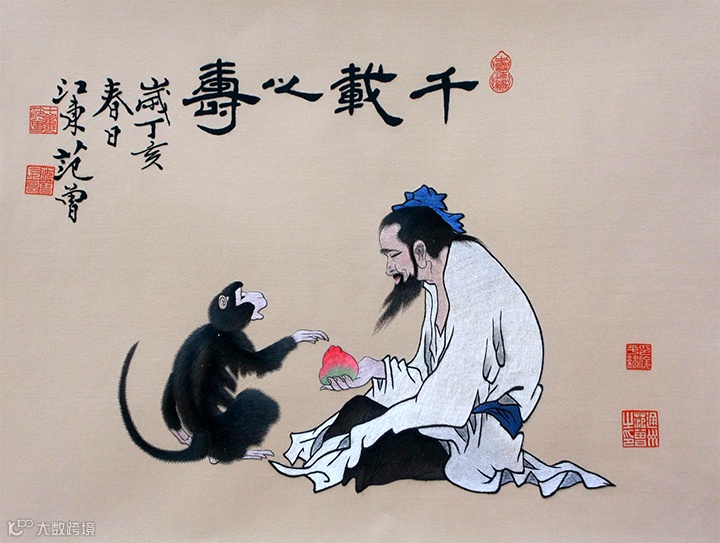 千載之壽
歲丁亥
春日
江東范曾
大数跨境